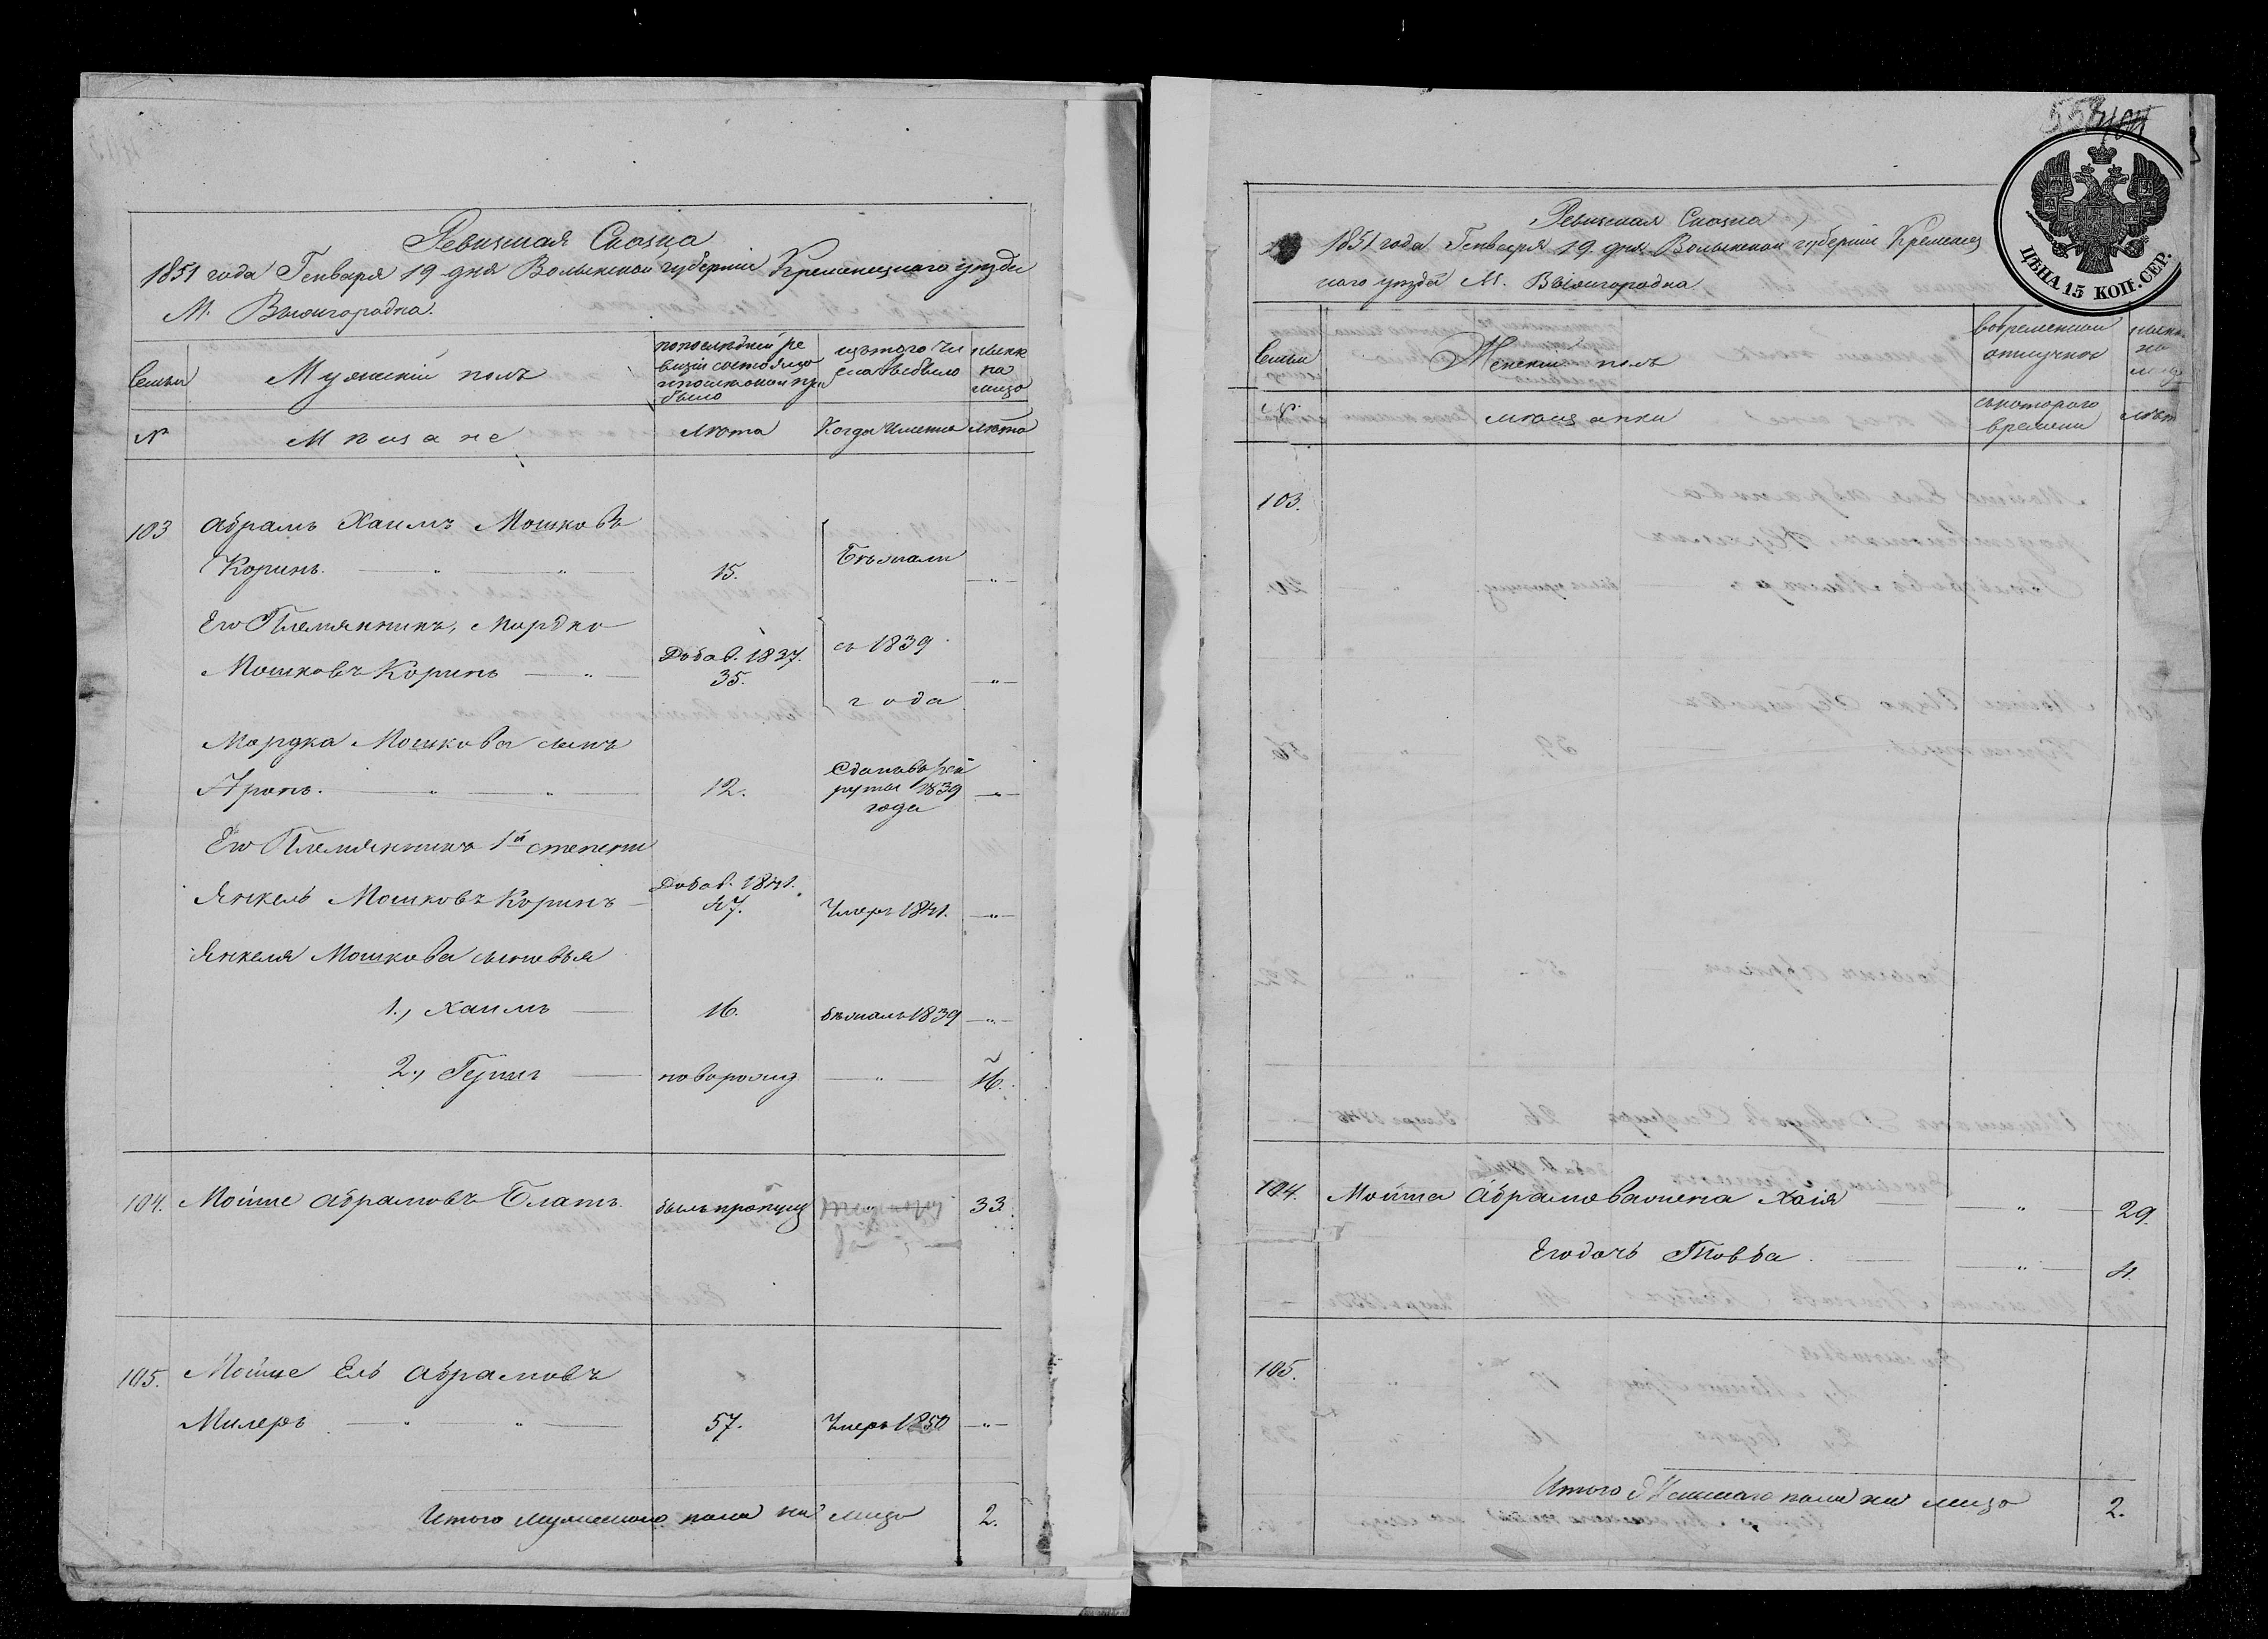 Ревизская Сказка
1851 года Генваря 19 дня Волынской губернии Кременецкого уезда
М. Вышгородка.
Семьи
Мужеский полъ
по последней ре
визии состояло
и после оной при
было
изъ того чи
сла выбыло
ныне
на
лицо
№
Мещане
Лета
Когда именно
Лета
103 Абрамъ Хаимъ Мошковъ
Коринъ. — „ — „ — 15. — „ —
Бежали
съ 1839
года
Его Племянникъ, Мордко
Мошковъ Коринъ — „ — Добав. 1837. 35. — „ —
Мордка Мошкова сынъ
Аронъ. — „ — „ — 12. Сданъ въ рек
руты 1839
года — „ —
Его Племянникъ 1й степени
Янкель Мошковъ Коринъ — Добав. 1841. 47. Умеръ 1841. — „ —
Янкеля Мошкова сыновья
1., Хаимъ — 16. бежалъ 1839 — „ —
2., — новорожд — „ — 16.
104. Мойше Абрамовъ Блатъ. былъ пропущ „ 33.
105. Мойше Ель Абрамовъ
Милеръ — „ — „ — 57. Умеръ 1850 — „ —
Итого мужеского пола на лицо 2.
554
ЦѢНА 15 КОП. СЕР.
Ревизская Сказка
1851 года Генваря 19 дня Волынской губернии Кременец
кого уезда М. Вышгородка
Семьи
Женский полъ
во временной
отлучке
ныне
на
лицо
№.
мещанки
съ которого
времени
лета
103.
104. Мойша Абрамова жена Хаія — „ — 29.
Его дочь Товба — „ — 4.
105.
Итого Женского пола на лицо 2.